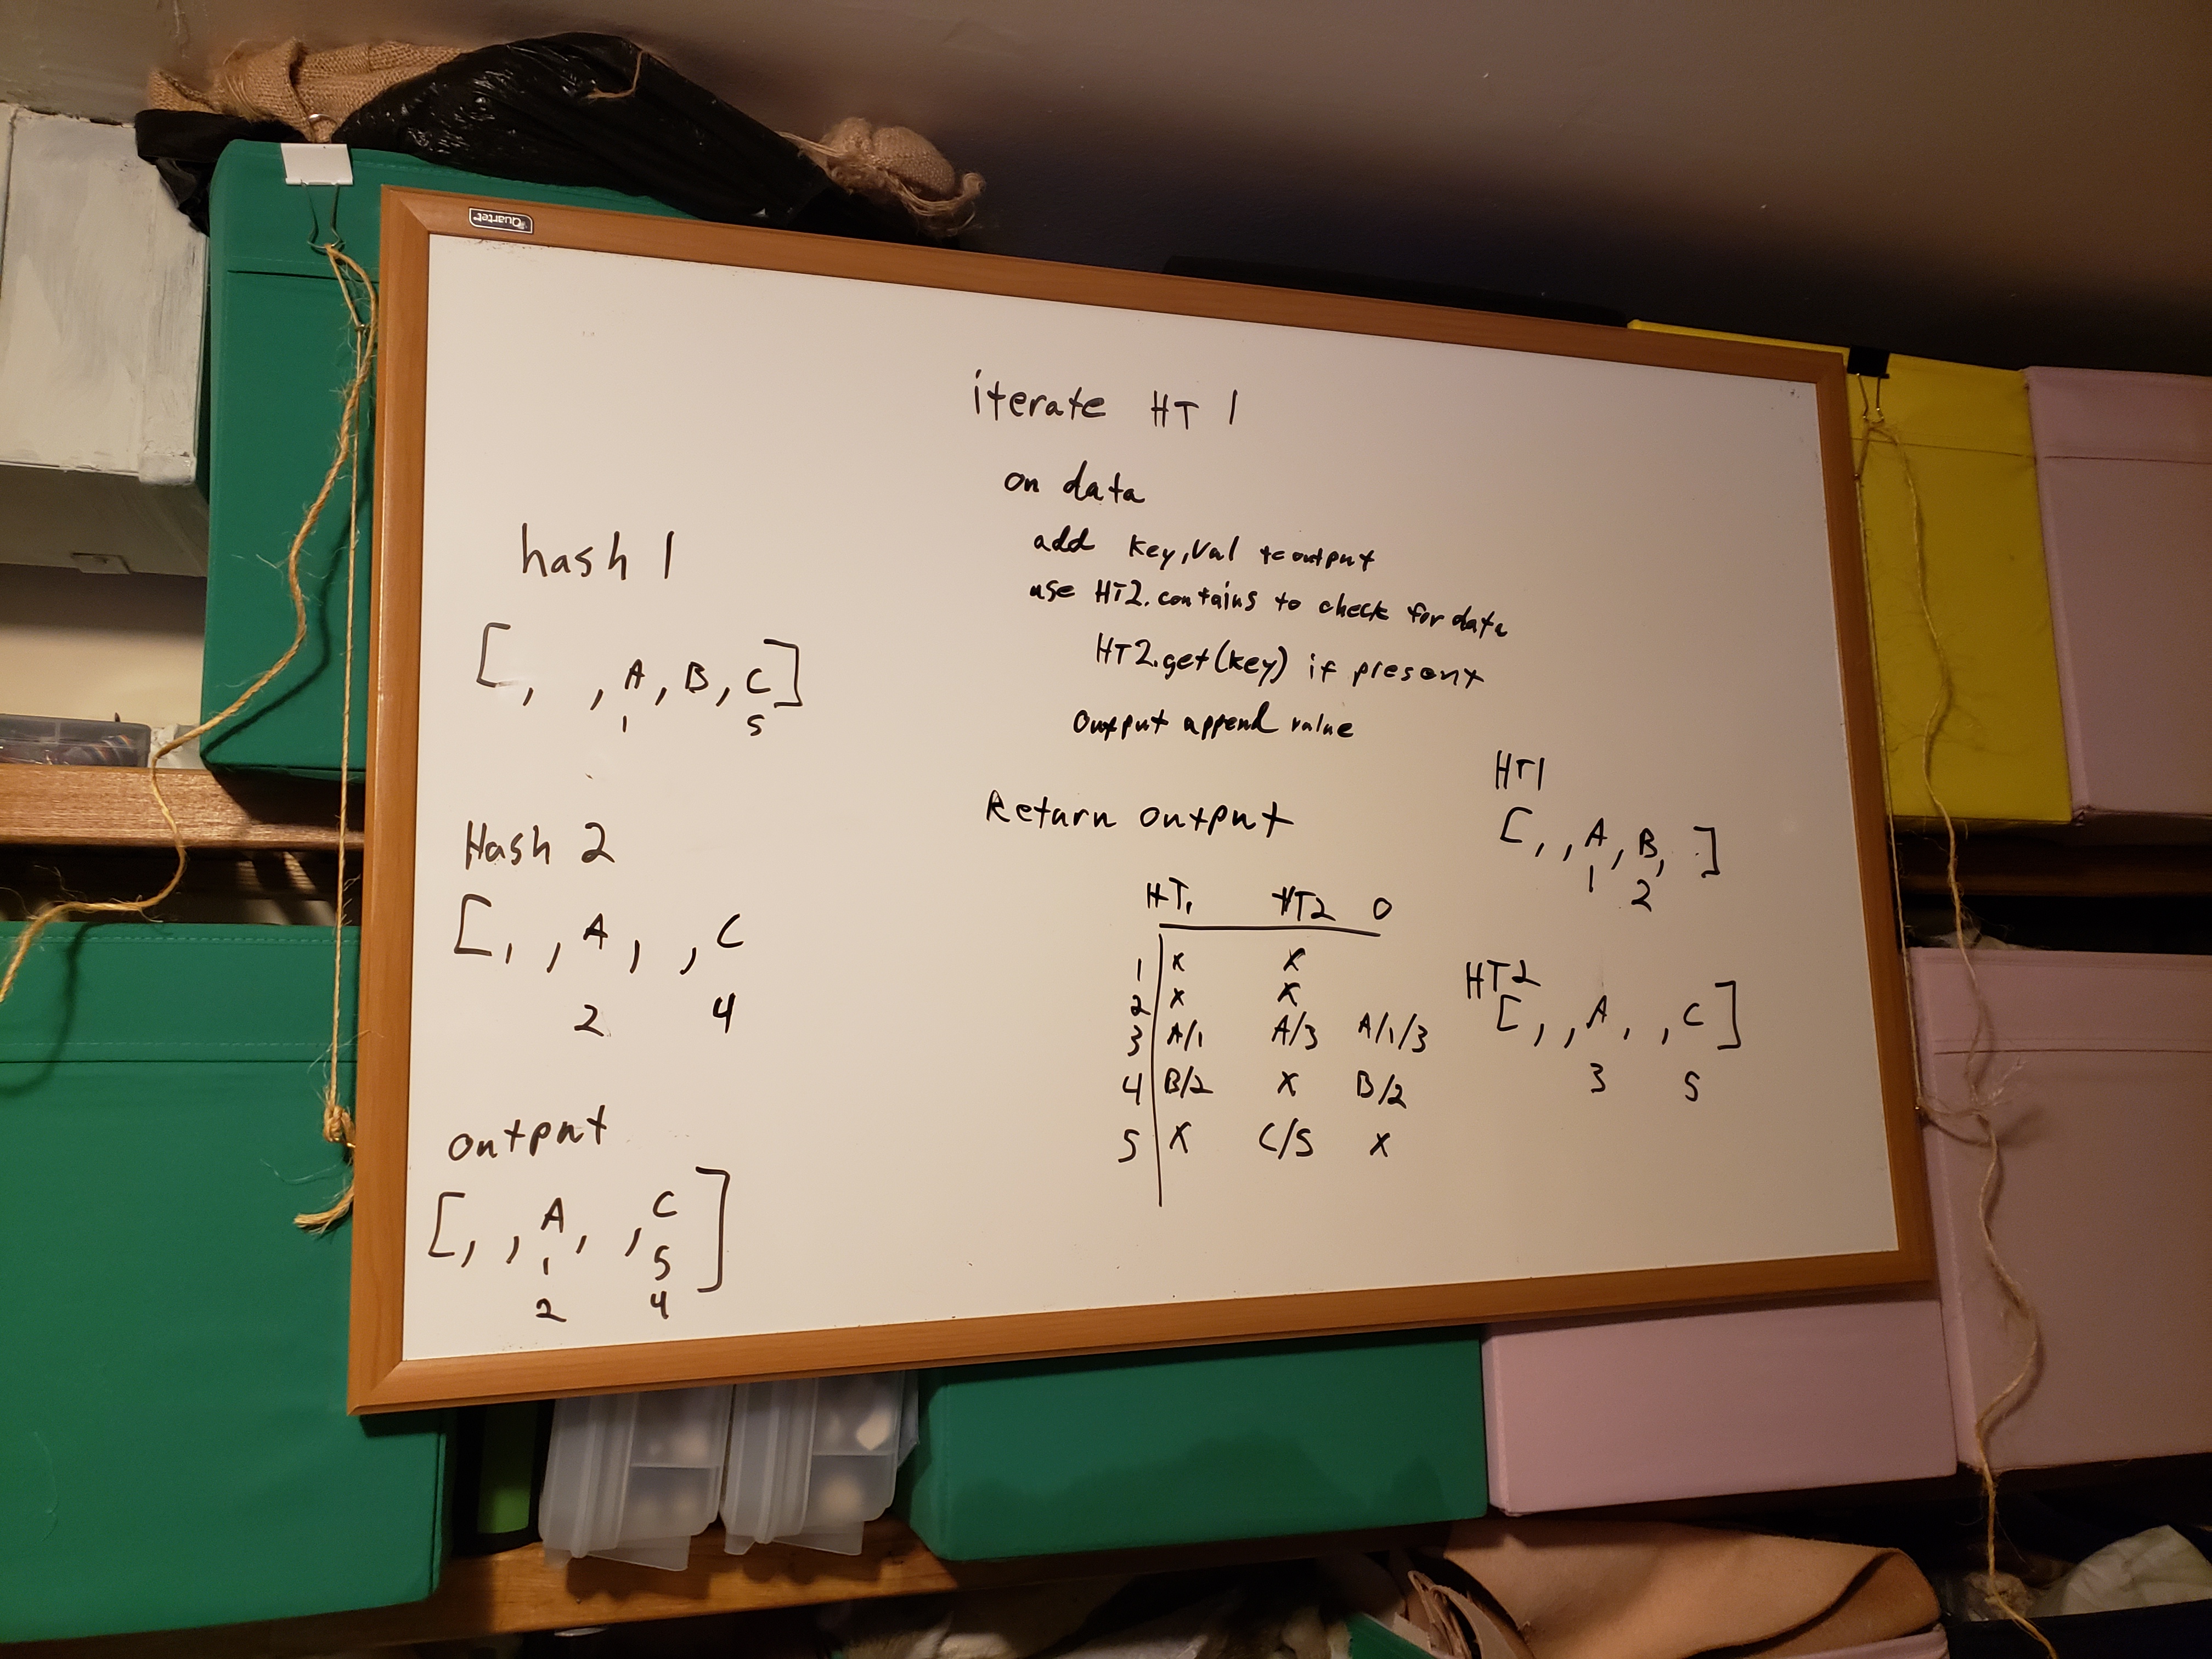 Quartet
hash 1
[, , A, B, C]
1 5
Hash 2
[, , A, , C
2 4
output
[, , A, , C]
1 5
2 4
iterate HT 1
on data
add key, val to output
use HT2.contains to check for data
HT2.get(key) if present
output append value
Return output
HT1 HT2 O
1 X X
2 X X
3 A/1 A/3 A/1/3
4 B/2 X B/2
5 X C/5 X
HT1
[, , A, B, ]
1 2
HT2
[, , A, , C]
3 5